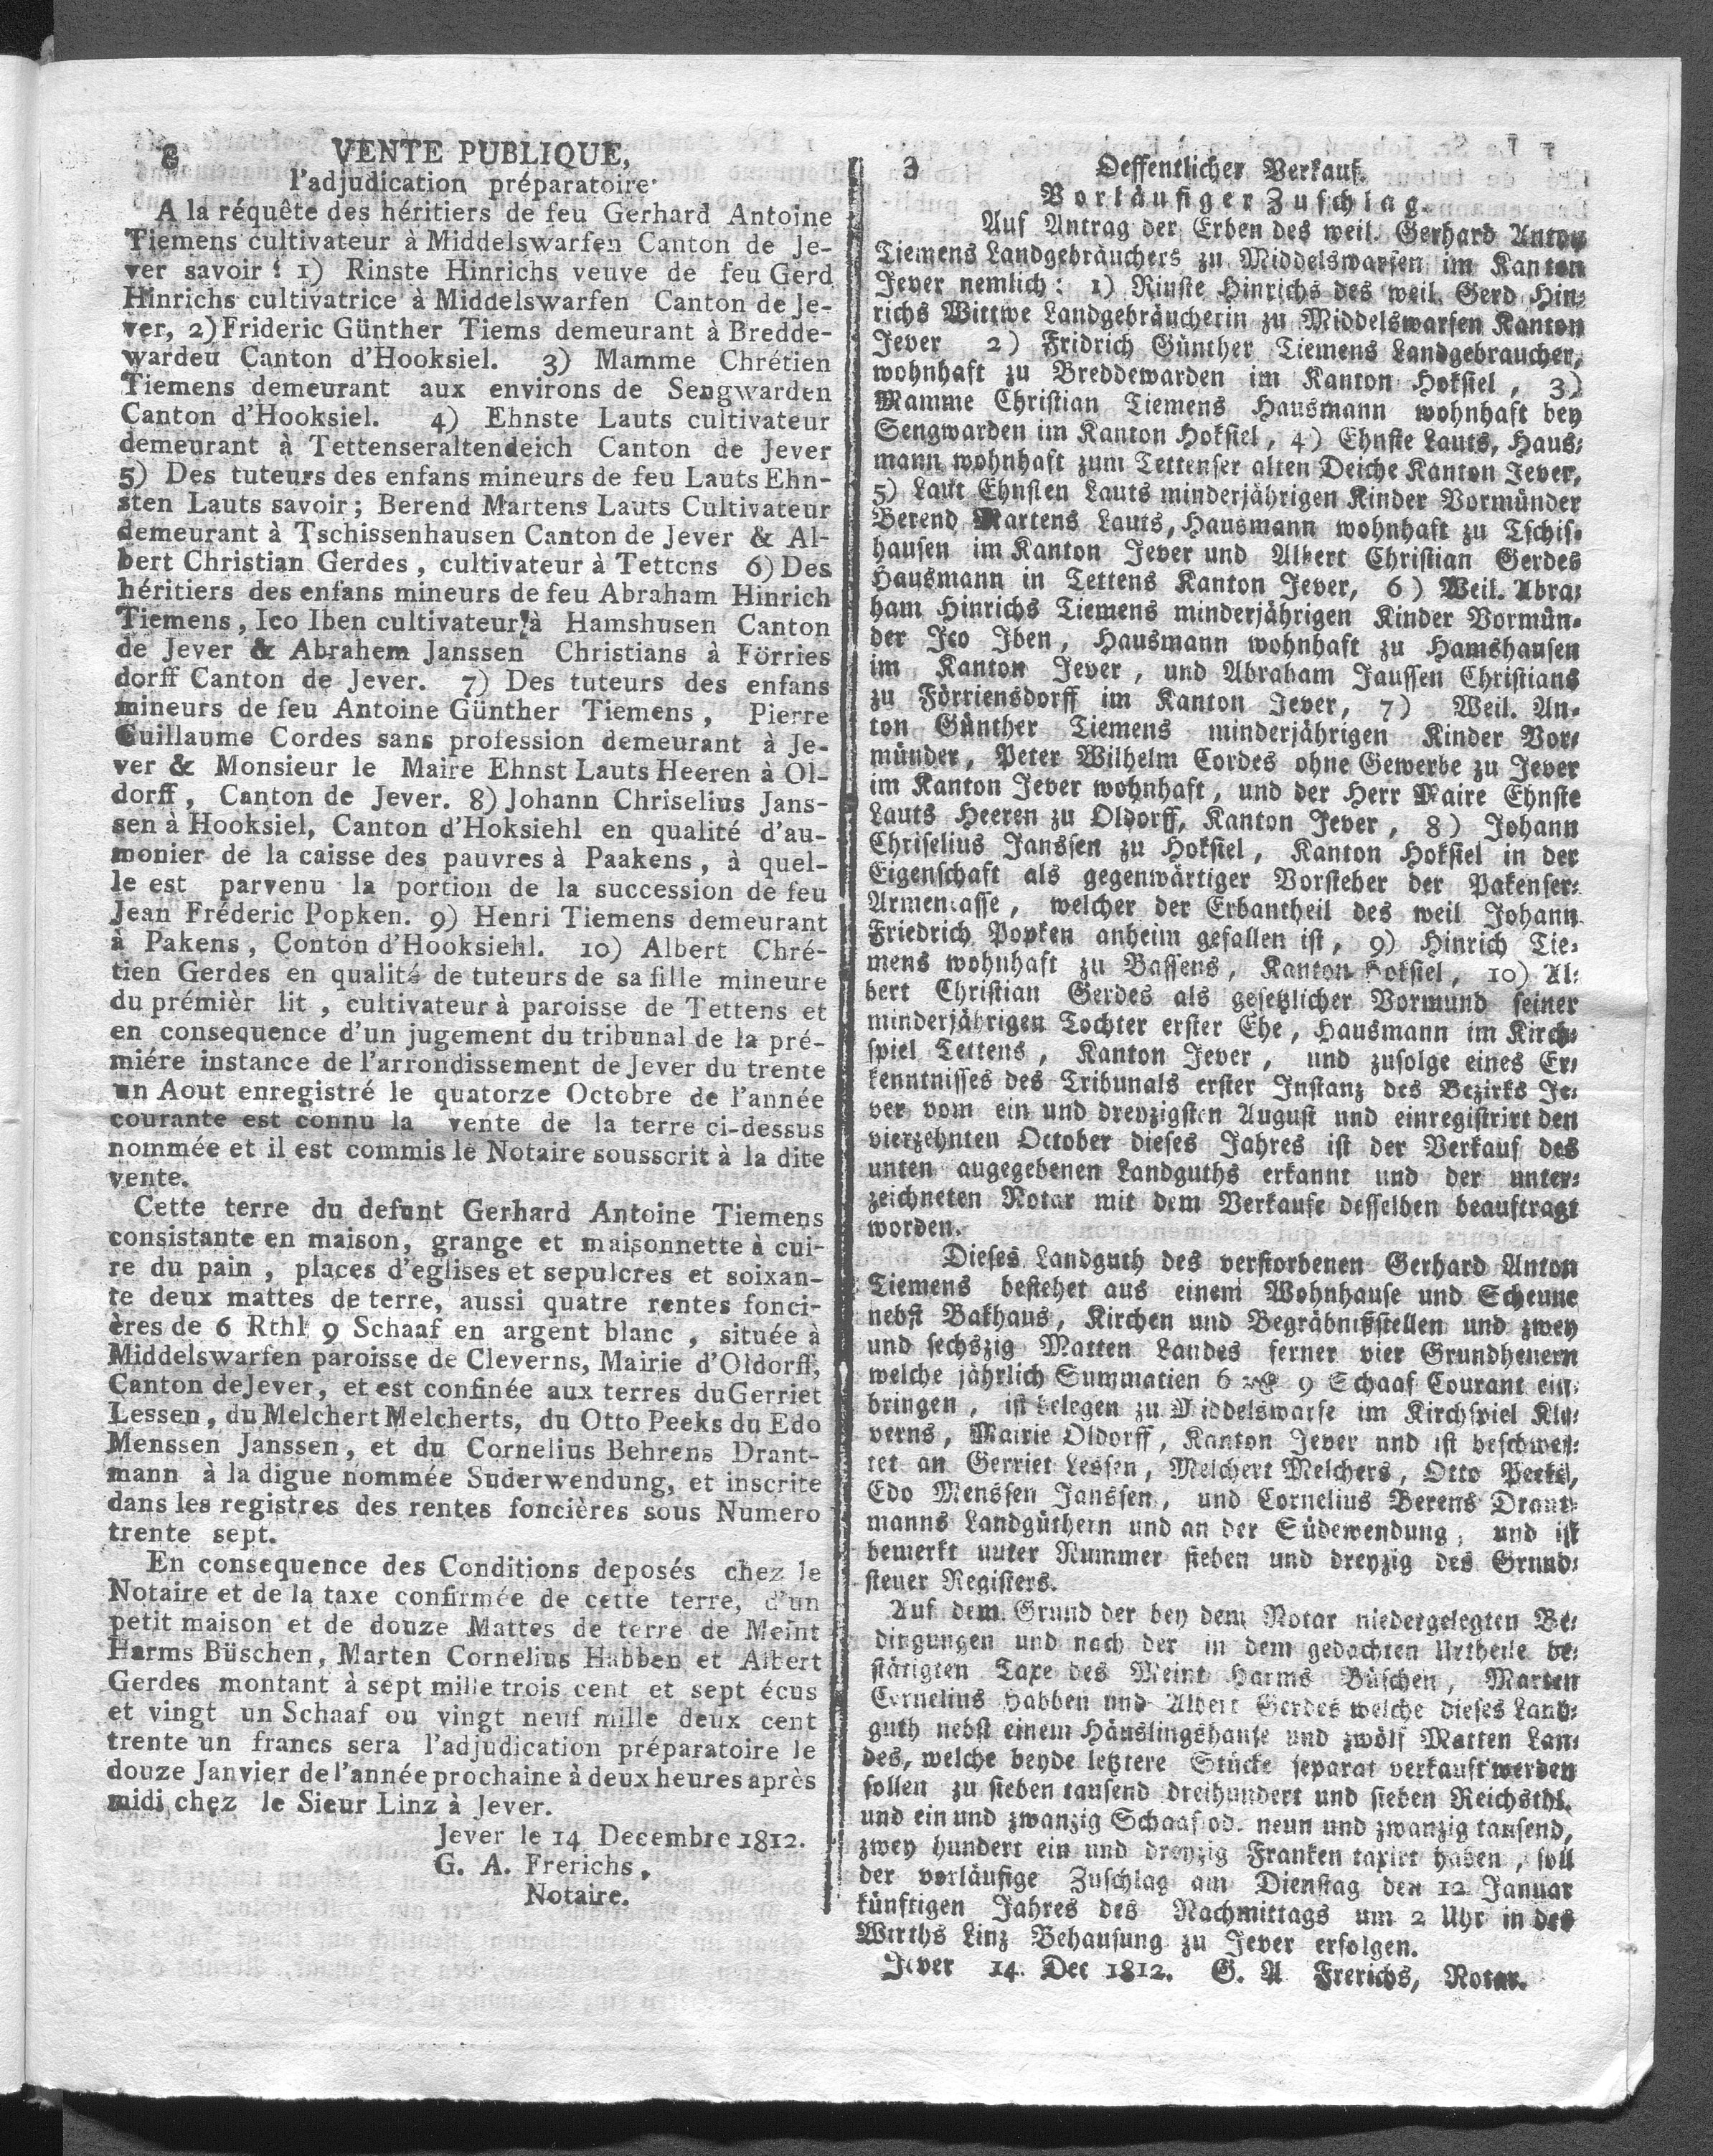 3 VENTE PUBLIQUE,
l'adjudication préparatoire
A la réquête des héritiers de feu Gerhard Antoine
Tiemens cultivateur à Middelswarfen Canton de Je-
ver savoir: 1) Rinste Hinrichs veuve de feu Gerd
Hinrichs cultivatrice à Middelswarfen Canton de Je-
ver, 2) Frideric Günther Tiems demeurant à Bredde-
wardeu Canton d'Hooksiel. 3) Mamme Chrétien
Tiemens demeurant aux environs de Sengwarden
Canton d'Hooksiel. 4) Ehnste Lauts cultivateur
demeurant à Tettenseraltendeich Canton de Jever
5) Des tuteurs des enfans mineurs de feu Lauts Ehn-
sten Lauts savoir; Berend Martens Lauts Cultivateur
demeurant à Tschissenhausen Canton de Jever & Al-
bert Christian Gerdes, cultivateur à Tettens 6) Des
héritiers des enfans mineurs de feu Abraham Hinrich
Tiemens, Ico Iben cultivateur à Hamshusen Canton
de Jever & Abrahem Janssen Christians à Förries
dorff Canton de Jever. 7) Des tuteurs des enfans
mineurs de feu Antoine Günther Tiemens, Pierre
Guillaume Cordes sans profession demeurant à Je-
ver & Monsieur le Maire Ehnst Lauts Heeren à Ol-
dorff, Canton de Jever. 8) Johann Chriselius Jans-
sen à Hooksiel, Canton d'Hoksiehl en qualité d'au-
monier de la caisse des pauvres à Paakens, à quel-
le est parvenu la portion de la succession de feu
Jean Fréderic Popken. 9) Henri Tiemens demeurant
à Pakens, Conton d'Hooksiehl. 10) Albert Chré-
tien Gerdes en qualité de tuteurs de sa fille mineure
du prémièr lit, cultivateur à paroisse de Tettens et
en consequence d'un jugement du tribunal de la pré-
miére instance de l'arrondissement de Jever du trente
un Aout enregistré le quatorze Octobre de l'année
courante est connu la vente de la terre ci-dessus
nommée et il est commis le Notaire sousscrit à la dite
vente.
Cette terre du defunt Gerhard Antoine Tiemens
consistante en maison, grange et maisonnette à cui-
re du pain, places d'eglises et sepulcres et soixan-
te deux mattes de terre, aussi quatre rentes fonci-
ères de 6 Rthl 9 Schaaf en argent blanc, située à
Middelswarfen paroisse de Cleverns, Mairie d'Oldorff,
Canton de Jever, et est confinée aux terres du Gerriet
Lessen, du Melchert Melcherts, du Otto Peeks du Edo
Menssen Janssen, et du Cornelius Behrens Drant-
mann à la digue nommée Suderwendung, et inscrite
dans les registres des rentes foncières sous Numero
trente sept.
En consequence des Conditions deposés chez le
Notaire et de la taxe confirmée de cette terre, d'un
petit maison et de douze Mattes de terre de Meint
Harms Büschen, Marten Cornelius Habben et Albert
Gerdes montant à sept mille trois cent et sept écus
et vingt un Schaaf ou vingt neuf mille deux cent
trente un francs sera l'adjudication préparatoire le
douze Janvier de l'année prochaine à deux heures après
midi chez le Sieur Linz à Jever.
Jever le 14 Decembre 1812.
G. A. Frerichs,
Notaire.
3 Oeffentlicher Verkauf.
Vorläufiger Zuschlag.
Auf Antrag der Erben des weil. Gerhard Anton
Tiemens Landgebräuchers zu Middelswarfen im Kanton
Jever nemlich: 1) Rinste Hinrichs des weil. Gerd Hin-
richs Wittwe Landgebräucherin zu Middelswarfen Kanton
Jever 2) Fridrich Günther Tiemens Landgebraucher,
wohnhaft zu Breddewarden im Kanton Hoksiel, 3)
Mamme Christian Tiemens Hausmann wohnhaft bey
Sengwarden im Kanton Hoksiel, 4) Ehnste Lauts, Haus-
mann wohnhaft zum Tettenser alten Deiche Kanton Jever,
5) Laut Ehnsten Lauts minderjährigen Kinder Vormünder
Berend Martens Lauts, Hausmann wohnhaft zu Tschis-
hausen im Kanton Jever und Albert Christian Gerdes
Hausmann in Tettens Kanton Jever, 6) Weil. Abra-
ham Hinrichs Tiemens minderjährigen Kinder Vormün-
der Ico Iben, Hausmann wohnhaft zu Hamshausen
im Kanton Jever, und Abraham Janssen Christians
zu Förriensdorff im Kanton Jever, 7) Weil. An-
ton Günther Tiemens minderjährigen Kinder Vor-
münder, Peter Wilhelm Cordes ohne Gewerbe zu Jever
im Kanton Jever wohnhaft, und der Herr Maire Ehnste
Lauts Heeren zu Oldorff, Kanton Jever, 8) Johann
Chriselius Janssen zu Hoksiel, Kanton Hoksiel in der
Eigenschaft als gegenwärtiger Vorsteher der Pakenser-
Armencasse, welcher der Erbantheil des weil Johann
Friedrich Popken anheim gefallen ist, 9) Hinrich Tie-
mens wohnhaft zu Bassens, Kanton Hoksiel, 10) Al-
bert Christian Gerdes als gesetzlicher Vormund seiner
minderjährigen Tochter erster Ehe, Hausmann im Kirch-
spiel Tettens, Kanton Jever, und zufolge eines Er-
kenntnisses des Tribunals erster Instanz des Bezirks Je-
ver vom ein und dreyzigsten August und einregistrirt den
vierzehnten October dieses Jahres ist der Verkauf des
unten augegebenen Landguths erkannt und der unter-
zeichneten Notar mit dem Verkaufe desselben beauftragt
worden.
Dieses Landguth des verstorbenen Gerhard Anton
Tiemens bestehet aus einem Wohnhause und Scheune
nebst Bakhaus, Kirchen und Begräbnißstellen und zwey
und sechszig Matten Landes ferner vier Grundheuern
welche jährlich Summatien 6 9 Schaaf Courant ein-
bringen, ist belegen zu Middelswarfe im Kirchspiel Kle-
verns, Mairie Oldorff, Kanton Jever und ist beschwet-
tet an Gerriet Lessen, Melchert Melchers, Otto Peeks,
Edo Menssen Janssen, und Cornelius Berens Drant-
manns Landgüthern und an der Südewendung, und ist
bemerkt unter Nummer sieben und dreyzig des Grund-
steuer Registers.
Auf dem Grund der bey dem Notar niedergelegten Be-
dingungen und nach der in dem gedachten Urtheile be-
stätigten Taxe des Meint Harms Büschen, Marten
Cornelius Habben und Albert Gerdes welche dieses Land-
guth nebst einem Häuslingshause und zwölf Matten Lan-
des, welche beyde letztere Stücke separat verkauft werden
sollen zu sieben tausend dreihundert und sieben Reichsthl.
und ein und zwanzig Schaaf od. neun und zwanzig tausend,
zwey hundert ein und dreyzig Franken taxirt haben, soll
der vorläufige Zuschlag am Dienstag den 12 Januar
künftigen Jahres des Nachmittags um 2 Uhr in des
Wirths Linz Behausung zu Jever erfolgen.
Jever 14. Dec 1812. G. A Frerichs, Notar.